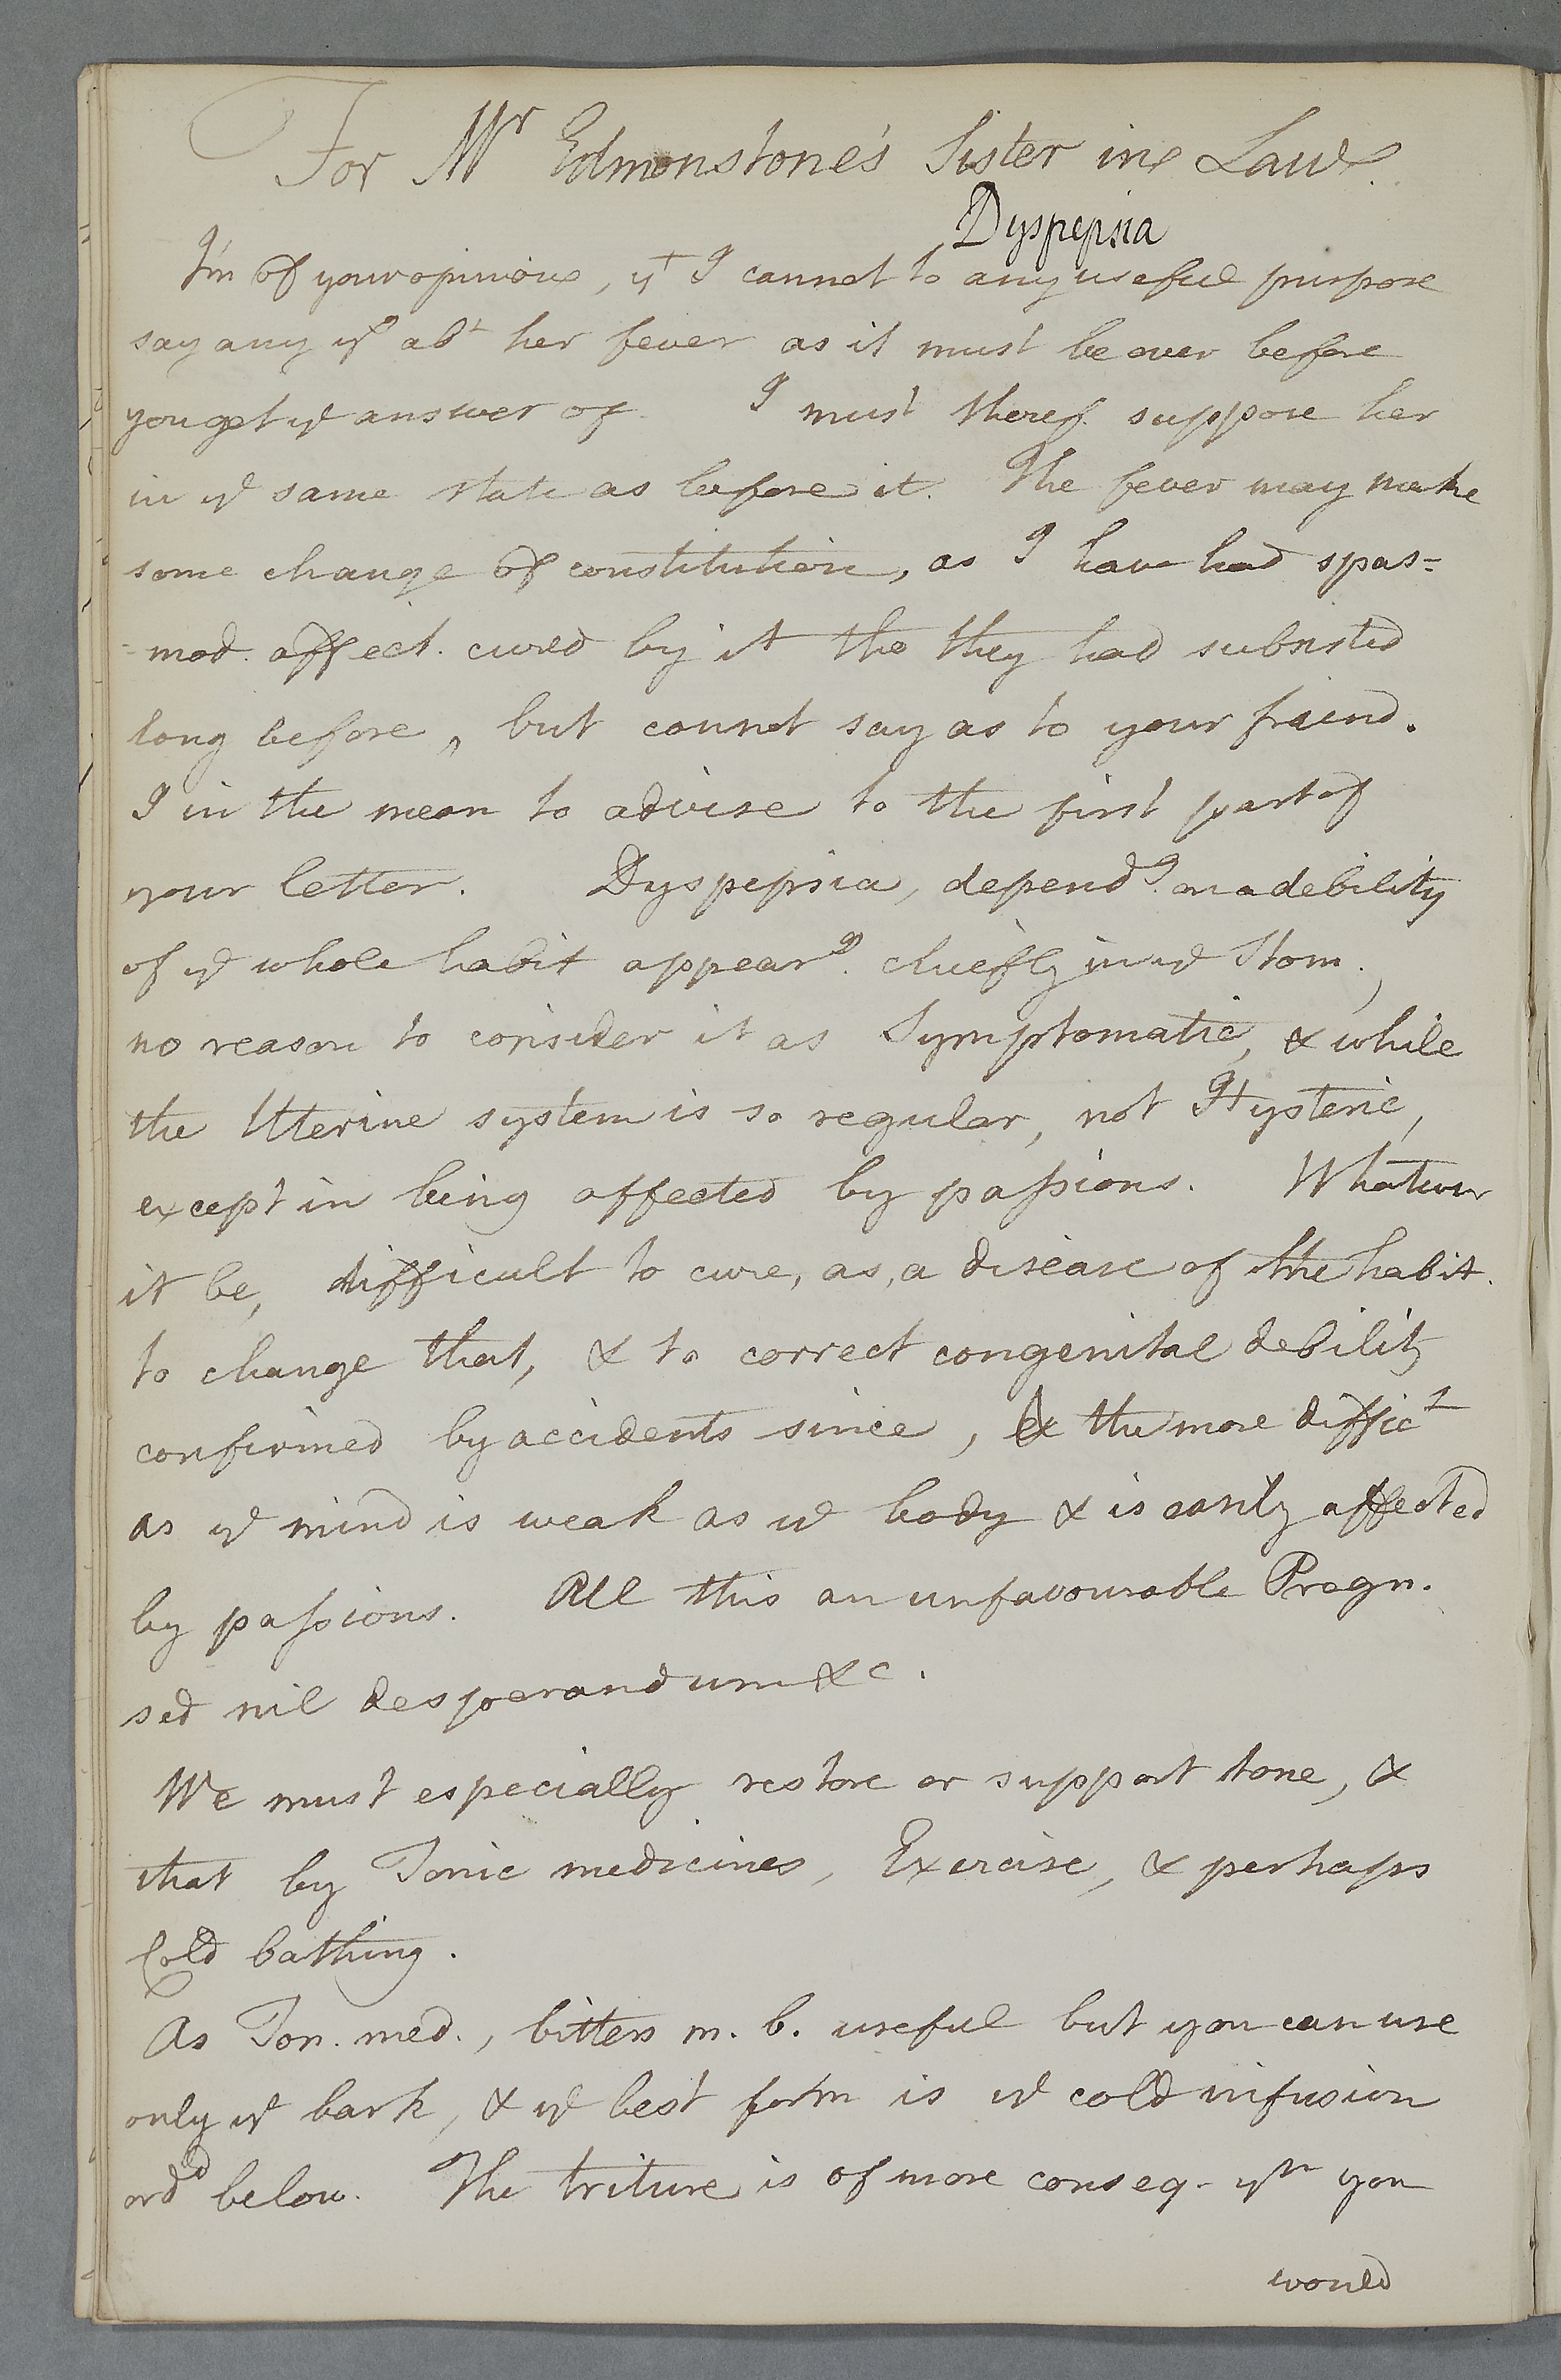 For Mr Edmonstone's Sister in Law.
Dyspepsia
I'm of your opinion, yt I cannot to any useful purpose
say any yg abt her fever as it must be over before
you get ye answer of. I must theref. suppose her
in ye same state as before it. The fever may make
some change of constitution, as I have had spas=
=mod. affect. cured by it tho they had subsisted
long before, but cannot say as to your friend.
I in the mean to advise to the first part of
your letter. Dyspepsia, dependg. on a debility
of ye whole habit appearg. chiefly in ye Stom.,
no reason to consider it as Symptomatic, & while
the Uterine system is so regular, not Hysteric,
except in being affected by passions. Whatever
it be, difficult to cure, as, a disease of the habit.
to change that, & to correct congenital debility
confirmed by accidents since, & the more diffict
as ye mind is weak as ye body & is easily affected
by passions. All this an unfavourable Progn.
sed nil desperandum &c.
We must especially restore or support tone, &
that by Tonic medicines, Exercise, & perhaps
Cold bathing.
As Ton. med., bitters m. b. useful but you can use
only ye bark, & ye best form is ye cold infusion
ordd below. The triture is of more conseq. yn you
would